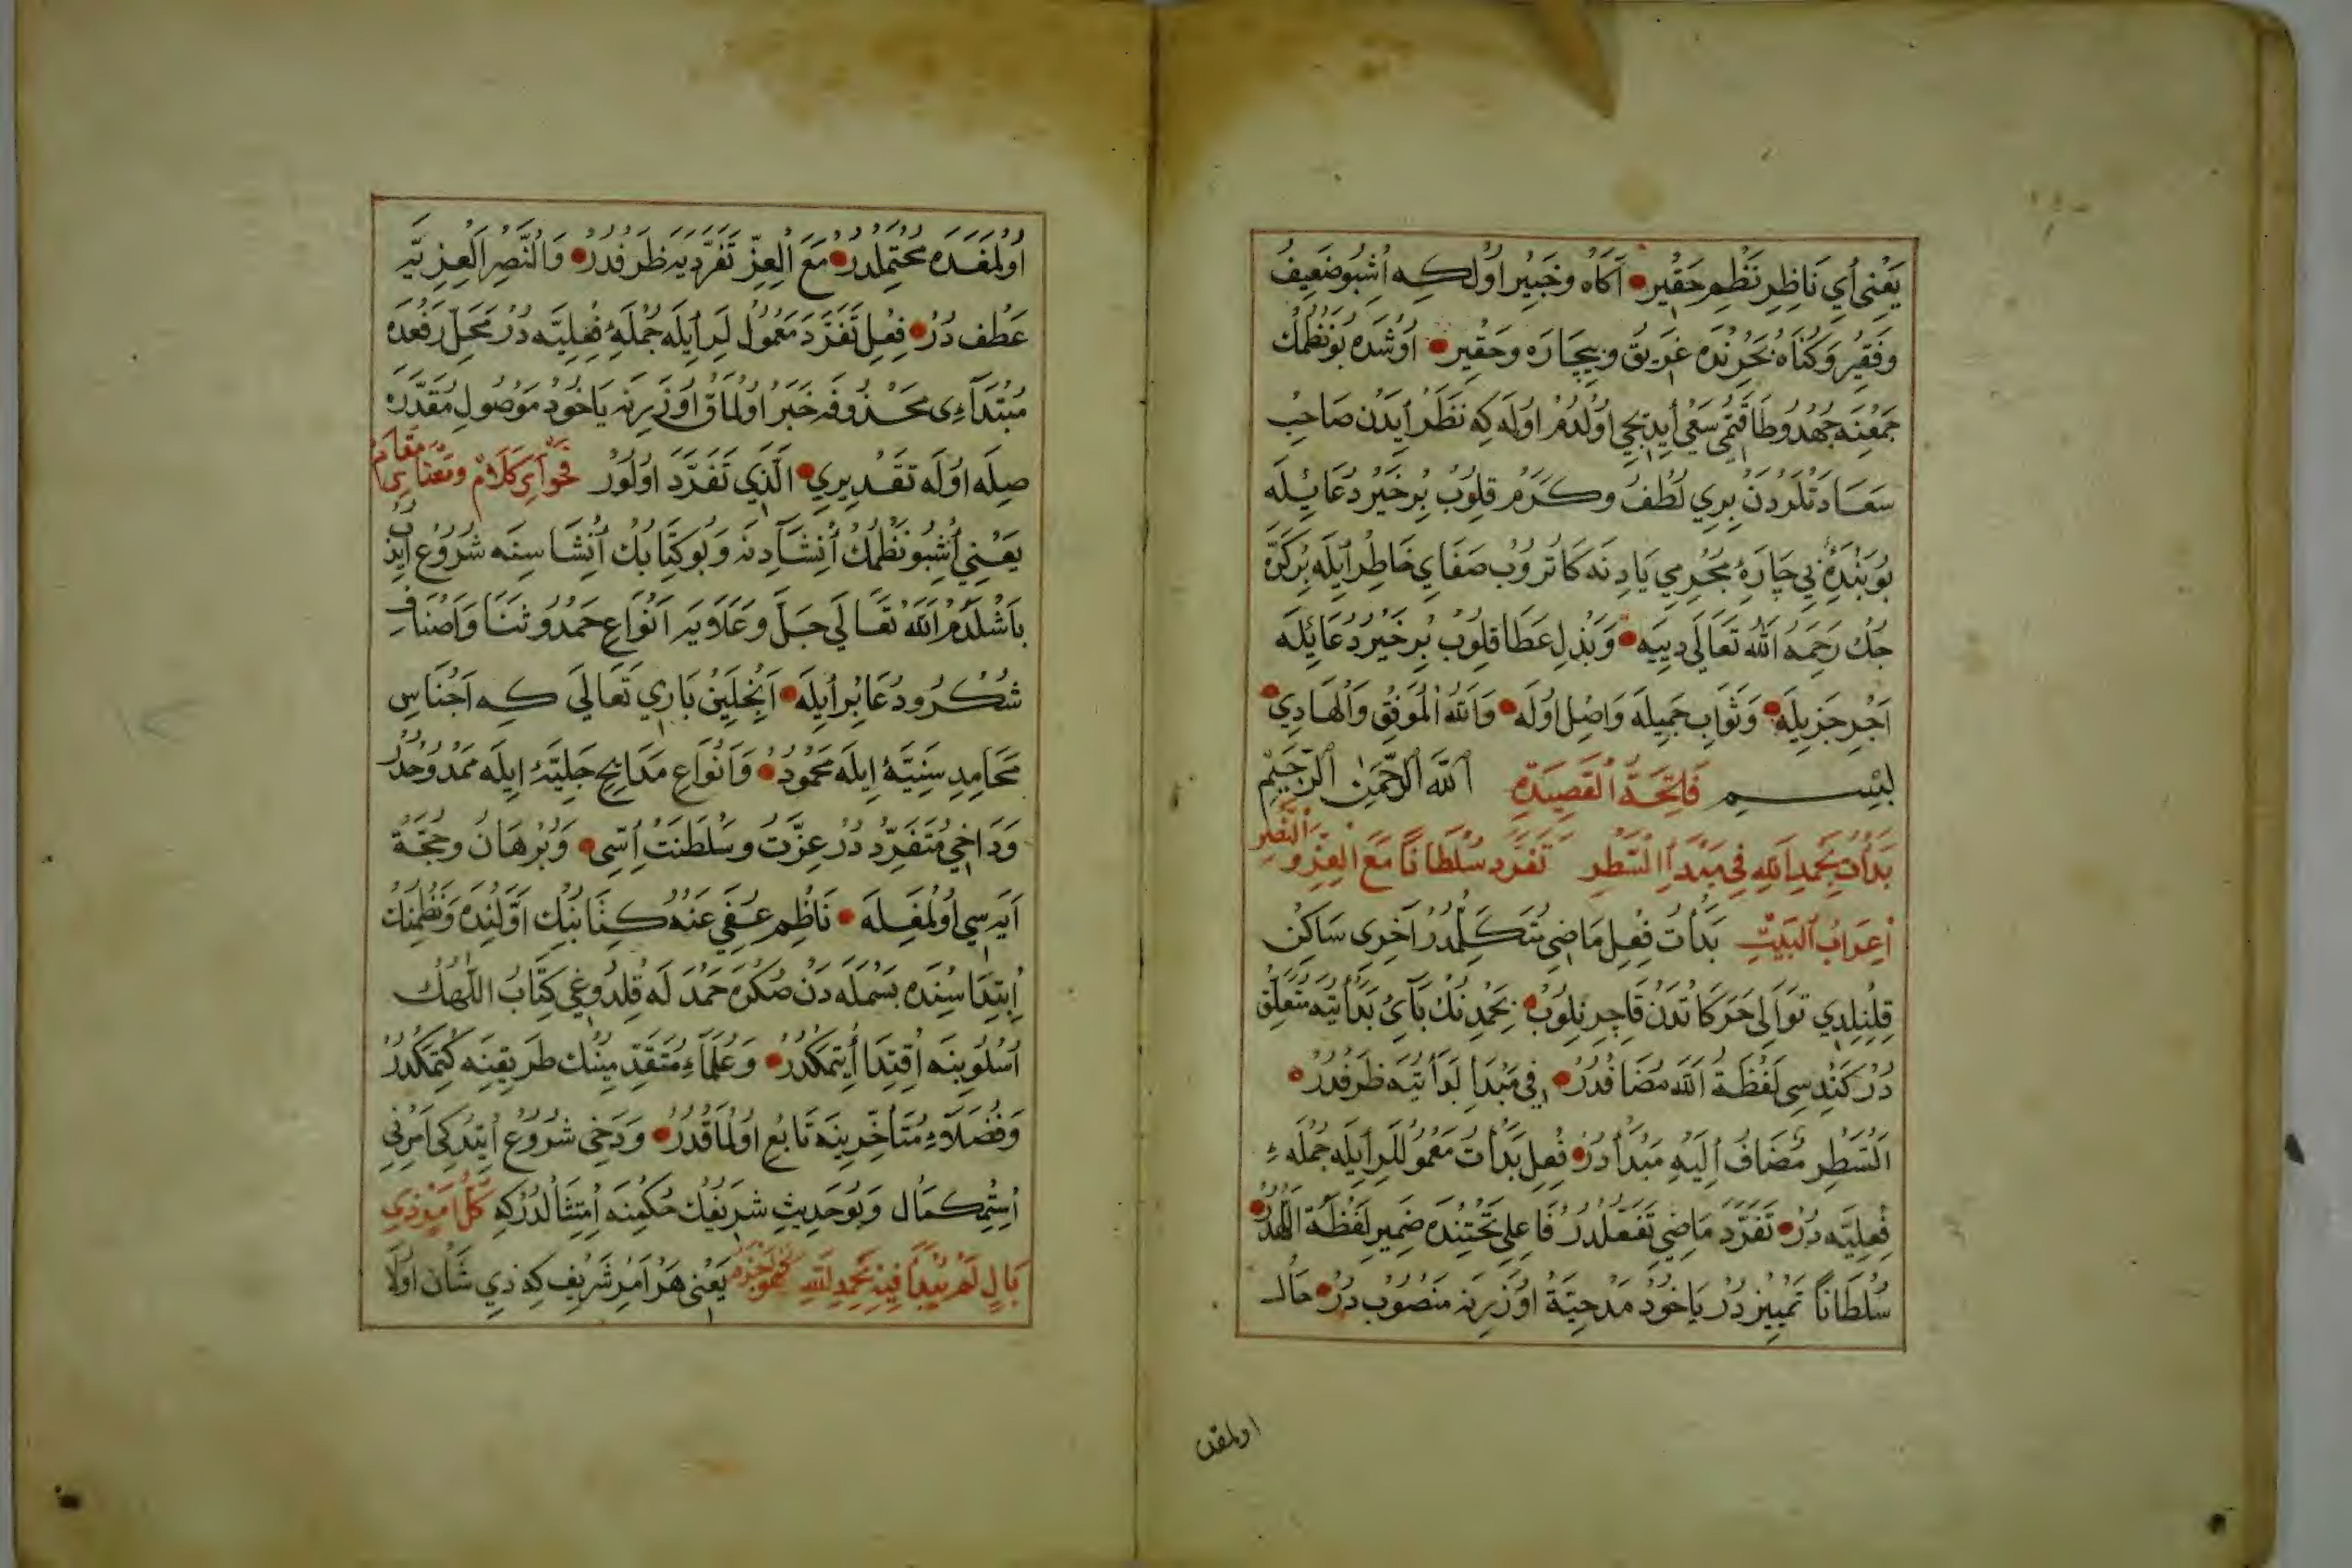 يَعْنِي أَيْ نَاظِرِ نَظْمِ حَقِيرْ آكَاهْ وخَبِيرْ اُولْ كِه اُشْبُو ضَعِيفْ
وفَقِيرْ وكُنَاهْ بَحْرِنْدَه غَرِيقْ وبِيچَارَه وحَقِيرْ اُوشْدَه بُو نَظْمِكْ
جَمْعِنَه جُهْدُ وطَاقَتِمِي سَعْي أَيْدِيجِي اُولْدُمْ اُولَه كِه نَظَرْ أَيْدَنْ صَاحِبْ
سَعَادَتْلَرْدَنْ بِرِي لُطْفْ وكَرَمْ قِلُوبْ بِرْ خَيْرْ دُعَائِيلَه
بُو بَنْدَهِٔ بِي چَارَهِٔ مُجْرِمِي يَادِنَه كَاتُرُوبْ صَفَايِ خَاطِرْ أَيْلَه بِرْ كَرَّه
جِكْ رَحِمَهُ اللّٰهُ تَعَالَى دِيَيَه وَبَذْلِ عَطَا قِلُوبْ بِرْ خَيْرْ دُعَائِلَه
اَجْرِ جَزِيلَه وَثَوَابِ جَمِيلَه وَاصِلْ اُولَه وَاللّٰهُ الْمُوَفِّقُ وَالْهَادِي
بِسْمِ فَاتِحَةُ الْقَصِيدَةِ اللّٰهِ الرَّحْمٰنِ الرَّحِيْمِ
بَدَأْتُ بِحَمْدِ اللّٰهِ فِي مَبْدَأِ السَّطْرِ تَفَرَّدَ سُلْطَانًا مَعَ الْعِزِّ وَالنَّصْرِ
اِعْرَابُ الْبَيْتِ بَدَأْتُ فِعْلِ مَاضِي مُتَكَلِّمْدُرْ آخَرِى سَاكِنْ
قِلِنْلِدِي تَوَالِي حَرَكَاتْدَنْ قَاجِرِنِلُوبْ بِحَمْدِنِكْ بَآيِ بَدَأْتِيَه مُتَعَلِّقْ
دُرْ كَنْدِسِي لَفْظَةُ اللّٰه مُضَافْدُرْ فِي مَبْدَأِ بَدَأْتِيَه ظَرْفْدُرْ
اَلسَّطْرِ مُضَافْ أِلَيْهِ مَبْدَأْدُرْ فِعْلِ بَدَأْتُ مَعْمُوللَرِ أَيْلَه جُمْلَهءِ
فِعْلِيَّه دُرْ تَفَرَّدَ مَاضِي تَفَعَّلْدُرْ فَاعِلِي تَحْتِنْدَه ضَمِيرِ لَفْظَةُ اللّٰهدُرْ
سُلْطَانًا تَمْيِيزْدُرْ يَاخُودْ مَدْحِيَّةْ اُوزَرِنَه مَنْصُوبْدُرْ حَال
اولمقده
اُولْمَغَدَه مُحْتَمِلْدُرْ مَعَ الْعِزِّ تَفَرَّدَيَه ظَرْفْدُرْ وَالنَّصْرِ اَلْعِزِّيَه
عَطْفْ دُرْ فِعْلِ تَفَرَّدَ مَعْمُولْلَرِ أَيْلَه جُمْلَهِٔ فِعْلِيَّه دُرْ مَحَلِّ رَفْعَدَه
مُبْتَدَاءِى مَحْذُوفَه خَبَرْ اُولْمَاقْ اُوزَرِنَه يَاخُودْ مَوْصُولِ مُقَدَّرَه
صِلَه اُولَه تَقْدِيرِي اَلَّذِي تَفَرَّدَ اُولُورْ فَحْوَآيِ كَلَامْ ومُقْتَضَايِ مَقَامْ
يَعْنِي اُشْبُو نَظْمِكْ أِنْشَآدِنَه وَبُو كِتَابِكْ أِنْشَاسِنَه شُرُوعْ أَيْدُبْ
بَاشْلَدُمْ اَللّٰهُ تَعَالَى جَلَّ وَعَلَايَه اَنْوَاعِ حَمْدُ وثَنَا وَاَصْنَافِ
شُكْرُ ودُعَا بِرْ أَيْلَه اَنْجِلَيِنْ بَارِي تَعَالَى كِه اَجْنَاسِ
مَحَامِدِ سَنِيَّهٔ اِيلَه مَحْمُودْ وَاَنْوَاعِ مَدَايِحِ جَلِيَّهٔ اِيلَه مَمْدُوحْدُرْ
وَدَاخِي مُتَفَرِّدْ دُرْ عِزَّتْ وسَلْطَنَتْ اِسِّي وَبُرْهَانْ وحُجَّةْ
اَيَهسِي اُولْمَغِلَه نَاظِمْ عُفِيَ عَنْهُ كِتَابِنِكْ اَوَّلِنْدَه وَنَظْمِنِكْ
اِبْتِدَاسِنْدَه بَسْمَلَه دَنْ صُكْرَه حَمْدَلَه قِلْدُوغِي كِتَابُ اللّٰهِكْ
اُسْلُوبِنَه أِقْتِدَا أَيْتَمَكْدُرْ وَعُلَمَآءِ مُتَقَدِّمِينِكْ طَرِيقِنَه كِتْمَكْدُرْ
وَفُضَلَاءِ مُتَأَخِّرِينَه تَابِعْ اُولْمَاقْدُرْ وَدَخِي شُرُوعْ أَيْتْدُكِي اَمْرِنِي
اِسْتِكْمَالْ وَبُو حَدِيثِ شَرِيفِكْ حُكْمِنَه أِمْتِثَالْدُرْكِه كُلُّ اَمْرٍ ذِي
بَالٍ لَمْ يُبْدَأْ فِيْهِ بِحَمْدِ اللّٰهِ فَهُوَ اَجْذَمُ يَعْنِي هَرْ اَمْرِ شَرِيفْ كِه ذِي شَأْن اُولَا